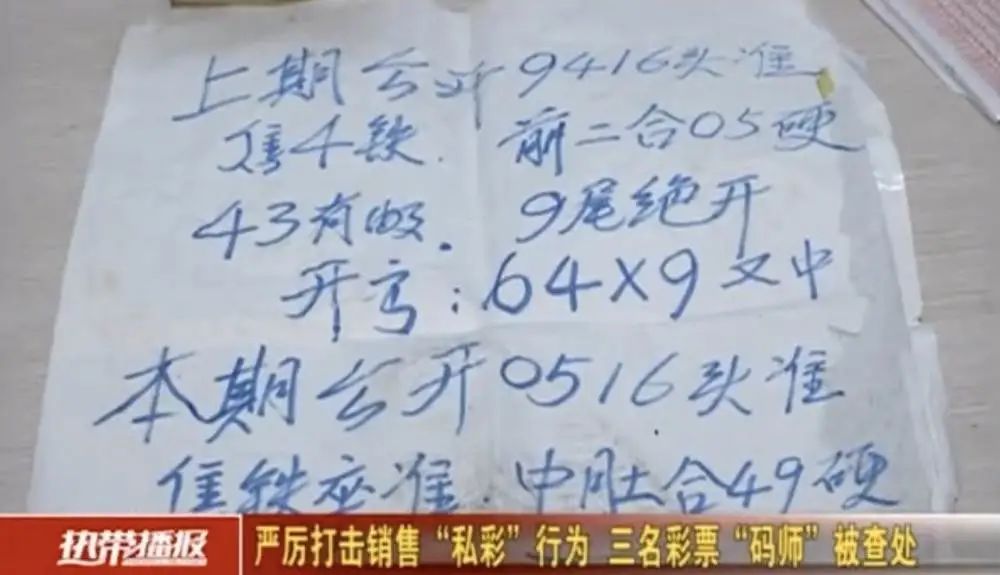 上期公开9416头准
售4铁. 前二合05硬
43有收. 9尾绝开
开宁:64X9又中
本期公开0516头准
售铁应准.中肚合49硬
热带播报
严厉打击销售“私彩”行为 三名彩票“码师”被查处